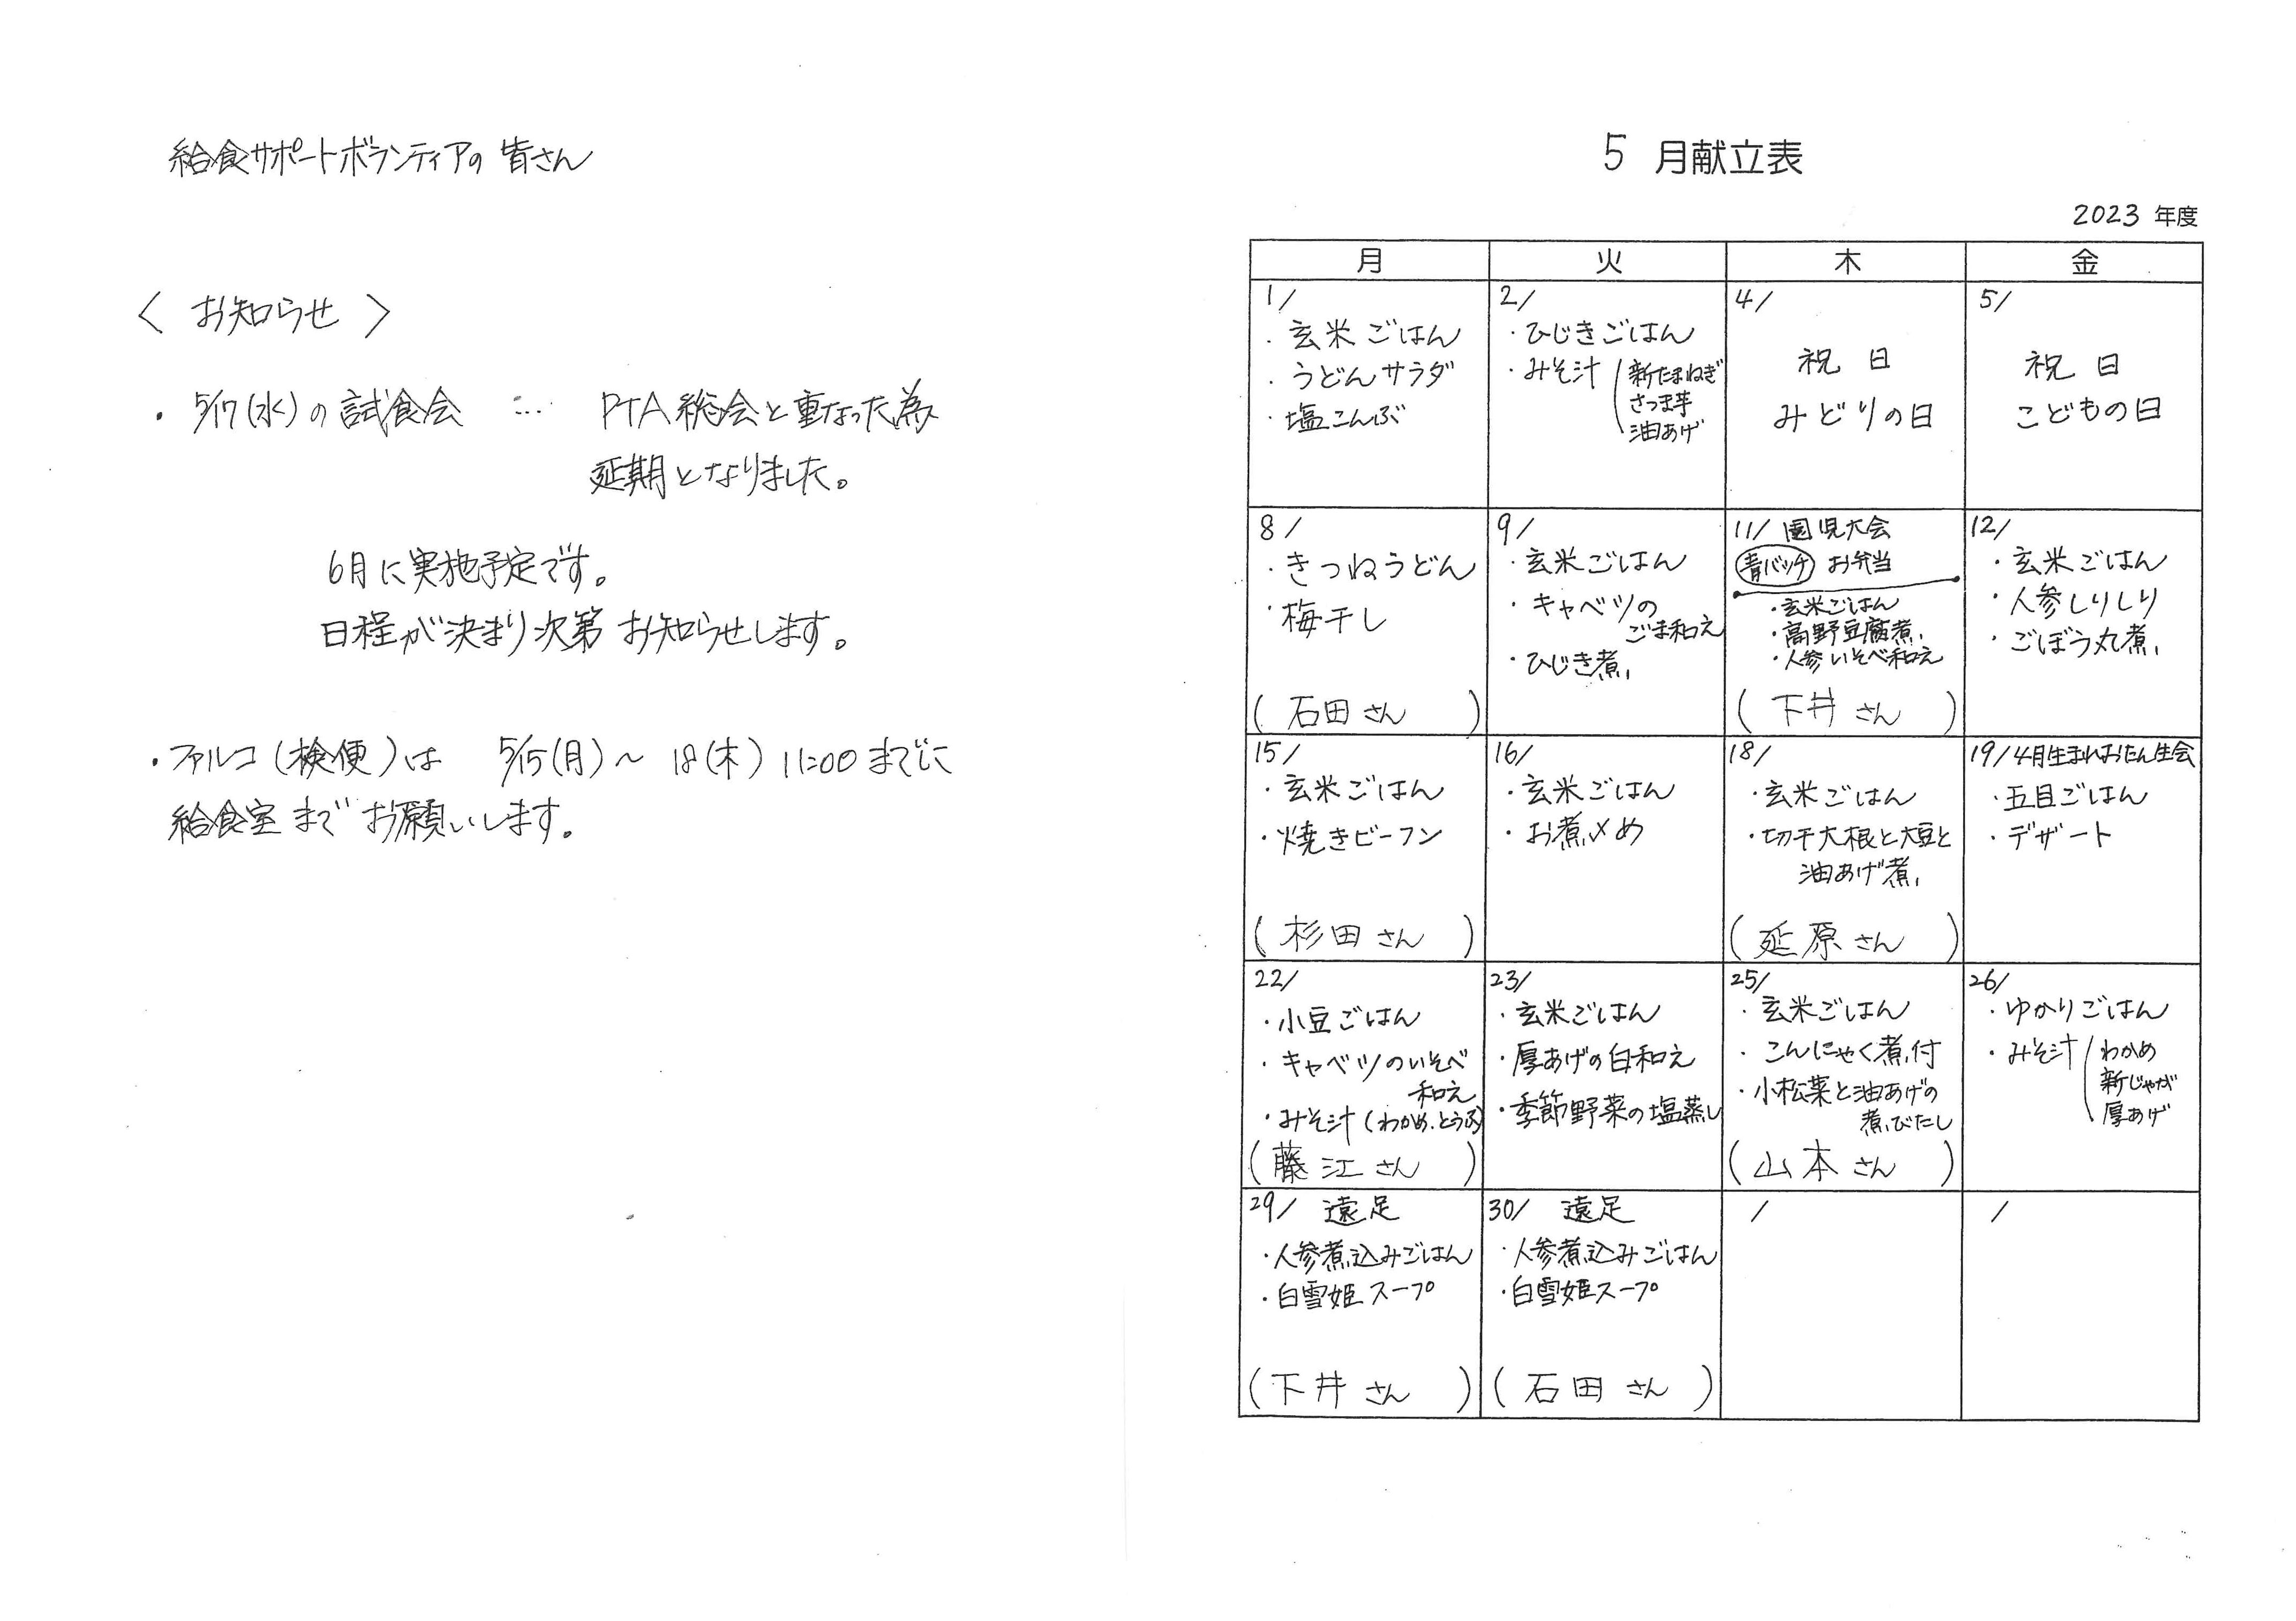 給食サポートボランティアの皆さん
〈 お知らせ 〉
・5/17(水)の試食会 … PTA総会と重なった為
延期となりました。
6月に実施予定です。
日程が決まり次第お知らせします。
・ファルコ(検便)は 5/15(月)〜18(木)11:00までに
給食室までお願いします。
5 月献立表
2023 年度
月 火 木 金
1/
・玄米ごはん
・うどんサラダ
・塩こんぶ
2/
・ひじきごはん
・みそ汁(新たまねぎ
さつま芋
油あげ
4/
祝日
みどりの日
5/
祝日
こどもの日
8/
・きつねうどん
・梅干し
(石田さん)
9/
・玄米ごはん
・キャベツの
ごま和え
・ひじき煮
11/ 園児大会
青バッチ お弁当
・玄米ごはん
・高野豆腐煮
・人参いそべ和え
(下井さん)
12/
・玄米ごはん
・人参しりしり
・ごぼう丸煮
15/
・玄米ごはん
・焼きビーフン
(杉田さん)
16/
・玄米ごはん
・お煮〆め
18/
・玄米ごはん
・切干大根と大豆と
油あげ煮
(延原さん)
19/4月生まれおたん生会
・五目ごはん
・デザート
22/
・小豆ごはん
・キャベツのいそべ
和え
・みそ汁(わかめ、とうふ)
(藤江さん)
23/
・玄米ごはん
・厚あげの白和え
・季節野菜の塩蒸し
25/
・玄米ごはん
・こんにゃく煮付
・小松菜と油あげの
煮びたし
(山本さん)
26/
・ゆかりごはん
・みそ汁(わかめ
新じゃが
厚あげ
29/ 遠足
・人参煮込みごはん
・白雪姫スープ
(下井さん)
30/ 遠足
・人参煮込みごはん
・白雪姫スープ
(石田さん)
/
/